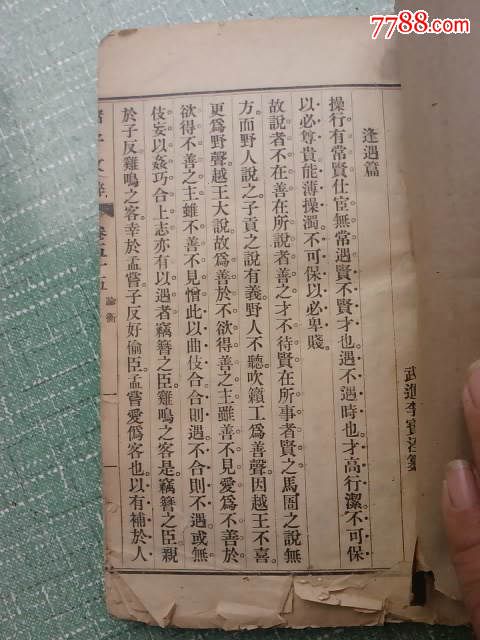 7788.com
武進李寶洤纂
逢遇篇
操行有常賢仕宦無常遇賢不賢才也遇不遇時也才高行潔不可保
以必尊貴能薄操濁不可保以必卑賤
故說者不在善在所說者善之才不待賢在所事者賢之馬圄之說無
方而野人說之子貢之說有義野人不聽吹籟工為善聲因越王不喜
更為野聲越王大說故為善於不欲得善之主雖善不見愛為不善於
欲得不善之主雖不善不見憎此以曲伎合合則遇不合則不遇或無
伎妄以姦巧合上志亦有以遇者竊簪之臣雞鳴之客是竊簪之臣親
於子反雞鳴之客幸於孟嘗子反好偷臣孟嘗愛偽客也以有補於人
諸子文粹 卷五十五 論衡